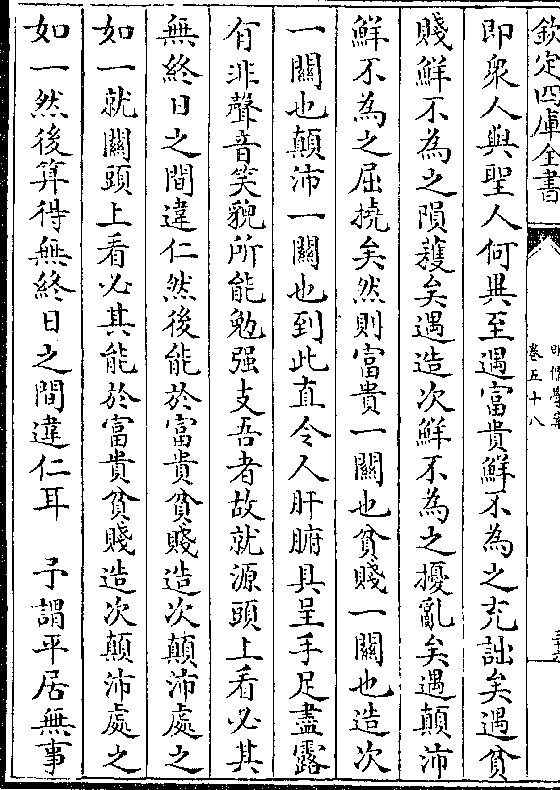 欽定四庫全書
明儒學案
卷五十八
即衆人與聖人何異至遇富貴鮮不為之充詘矣遇貧
賤鮮不為之隕穫矣遇造次鮮不為之擾亂矣遇顛沛
鮮不為之屈撓矣然則富貴一關也貧賤一關也造次
一關也顛沛一關也到此直令人肝腑具呈手足盡露
有非聲音笑貌所能勉强支吾者故就源頭上看必其
無終日之間違仁然後能於富貴貧賤造次顛沛處之
如一就關頭上看必其能於富貴貧賤造次顛沛處之
如一然後算得無終日之間違仁耳　予謂平居無事